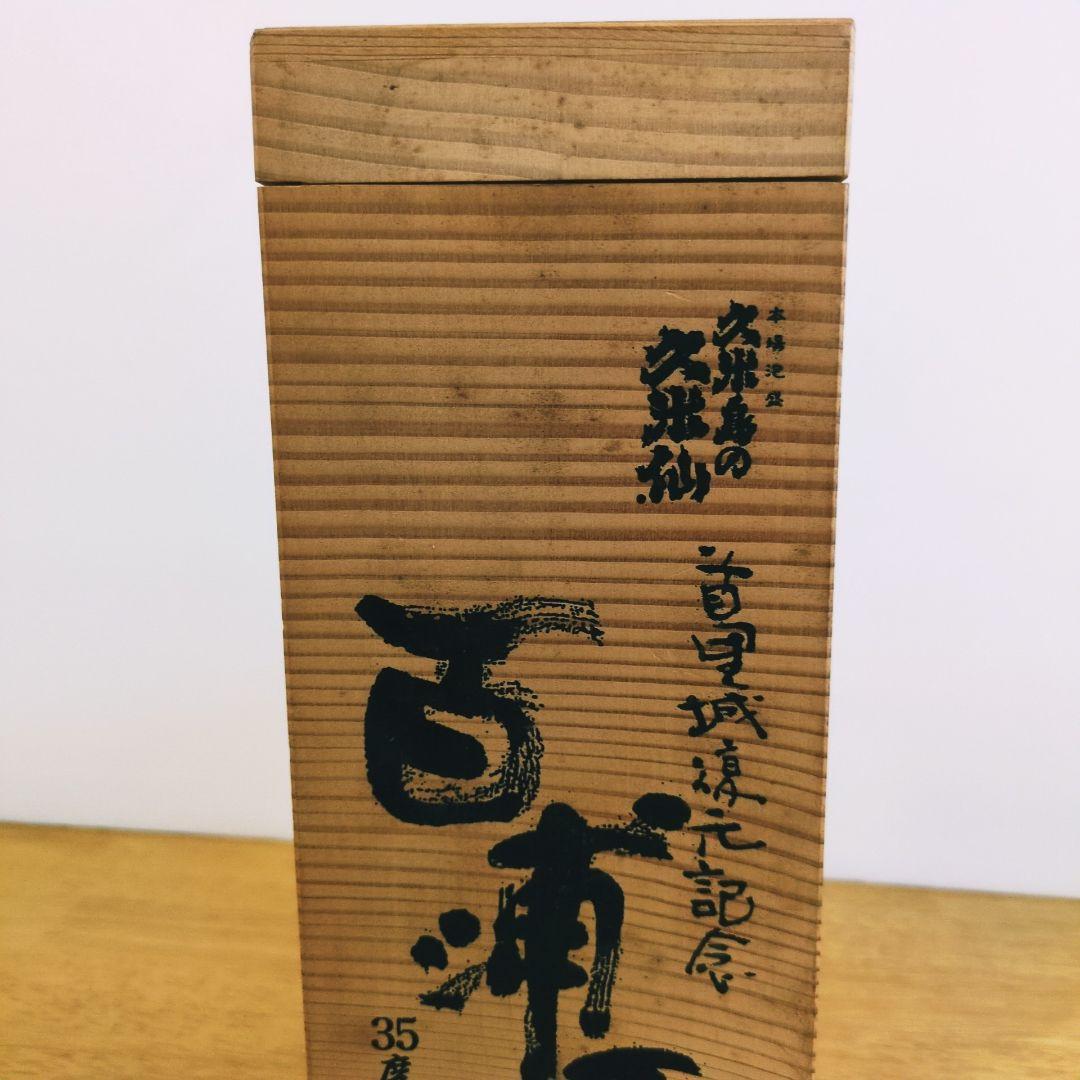 本場泡盛
久米島の
久米仙
首里城復元記念
百浦
35度